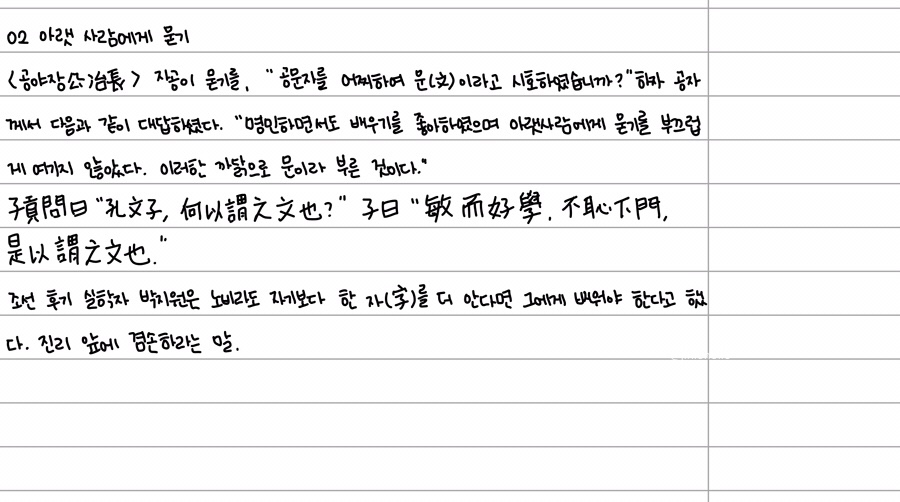 02 아랫 사람에게 묻기
<공야장公冶長> 자공이 묻기를, "공문자를 어찌하여 문(文)이라고 시호하였습니까?"하자 공자
께서 다음과 같이 대답하셨다. "명민하면서도 배우기를 좋아하였으며 아랫사람에게 묻기를 부끄럽
게 여기지 않았다. 이러한 까닭으로 문이라 부른 것이다."
子貢問曰 "孔文子, 何以謂之文也?" 子曰 "敏而好學, 不恥下門,
是以謂之文也."
조선 후기 실학자 박지원은 노비라도 자기보다 한 자(字)를 더 안다면 그에게 배워야 한다고 했
다. 진리 앞에 겸손하라는 말.